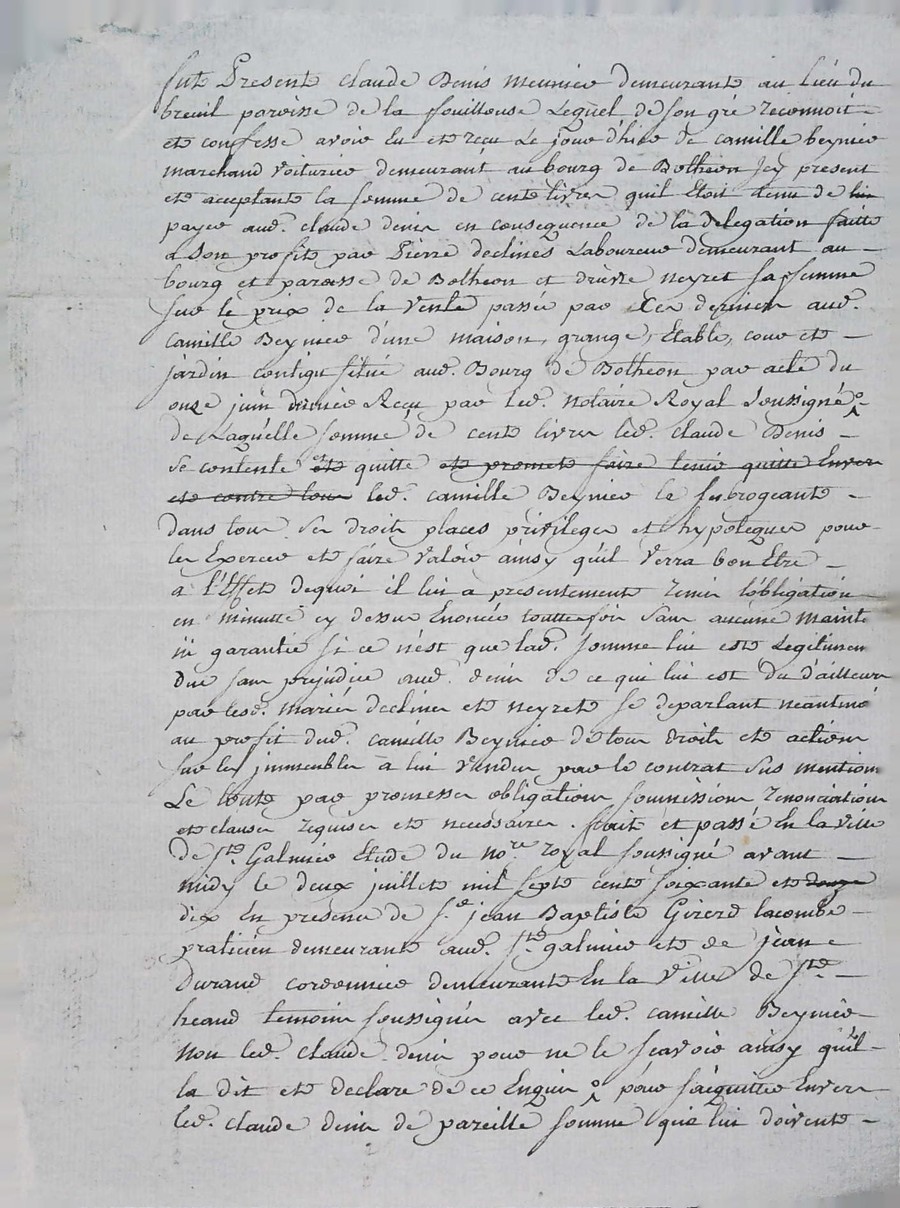 fut Present claude Denis meunier demeurant au lieu du
breuil paroisse de la fouillouse Lequel de son gré reconnoit
et confesse avoir Eu et reçu Le jour d'hier de camille beynier
marchand voiturier demeurant au bourg de Botheon Jcy present
et acceptant la somme de cent livres quil Etoit tenu de lui
payer aud. claude denis en consequence de la delegation faitte
a son profit par Pierre declines Laboureur demeurant au
bourg et paroisse de Botheon et neyret sa femme
sur le prix de la vente passée par Ces derniers aud.
Camille Beynier d'une maison, grange, Etable, cour et
jardin contigu situé aud. Bourg de Botheon par acte du
onze juin dernier Recu par led. notaire Royal soussigné
de Laquelle somme de cent livres led. claude Denis
se contente et quitte et promet faire tenir quitte Envers
et contre tous led. camille Beynier le subrogeant
dans tous ses droits places privileges et hypoteques pour
les Exercer et faire valoir ainsy quil verra bon Etre
a l'Effet dequoi il lui a presentement remis l'obligation
en minutte cy dessus Enoncée touttefois sans aucune mainte
ni garantie si ce n'est que lad. somme lui est Legitimem
due sans prejudice aud. denis de ce qui lui est du d'ailleurs
par lesd. mariés declines et neyret se departant néantmo
au profit dud. camille Beynier de tous droits et actions
sur les jmmeubles a lui vendus par le contrat sus mention
Le tout par promesses obligations soumissions renonciations
et clauses requises et necessaires. fait et passé En la ville
de St. Galmier Etude du nore. royal soussigné avant
midy le deux juillet mil sept cent soixante et douze
dix En presence de sr. jean Baptiste Girerd lacombe
praticien demeurant aud. St. galmier et de jean
Durand cordonnier demeurant En la ville de St.
heand temoins soussignés avec led. camille Beynier
Non led. claude denis pour ne le scavoir ainsy quil
la dit et declare de ce Enquis pour s'acquitter Envers
led. claude denis de pareille somme que lui doivent